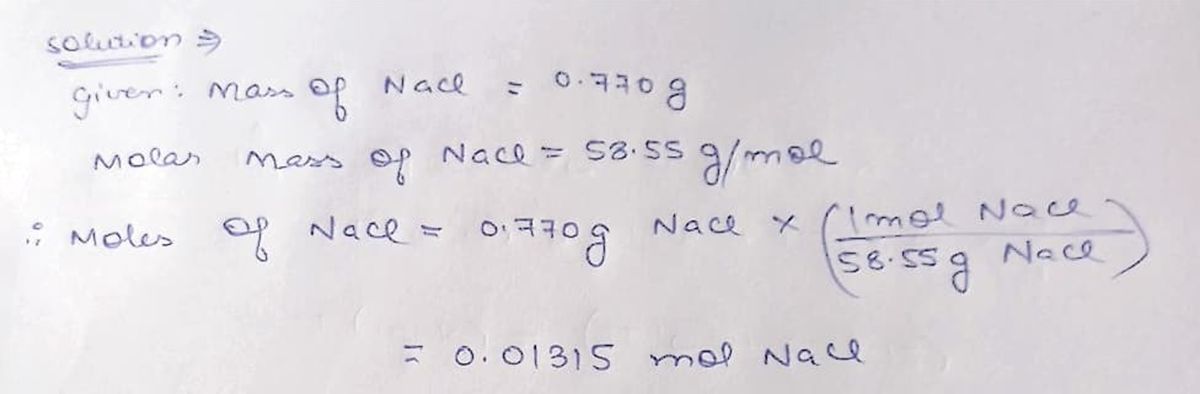 solution ⇒
given: Mass of Nacl = 0.770 g
Molar mass of Nacl = 58.55 g/mol
∴ Moles of Nacl = 0.770g Nacl × (1mol Nacl / 58.55 g Nacl)
= 0.01315 mol Nacl